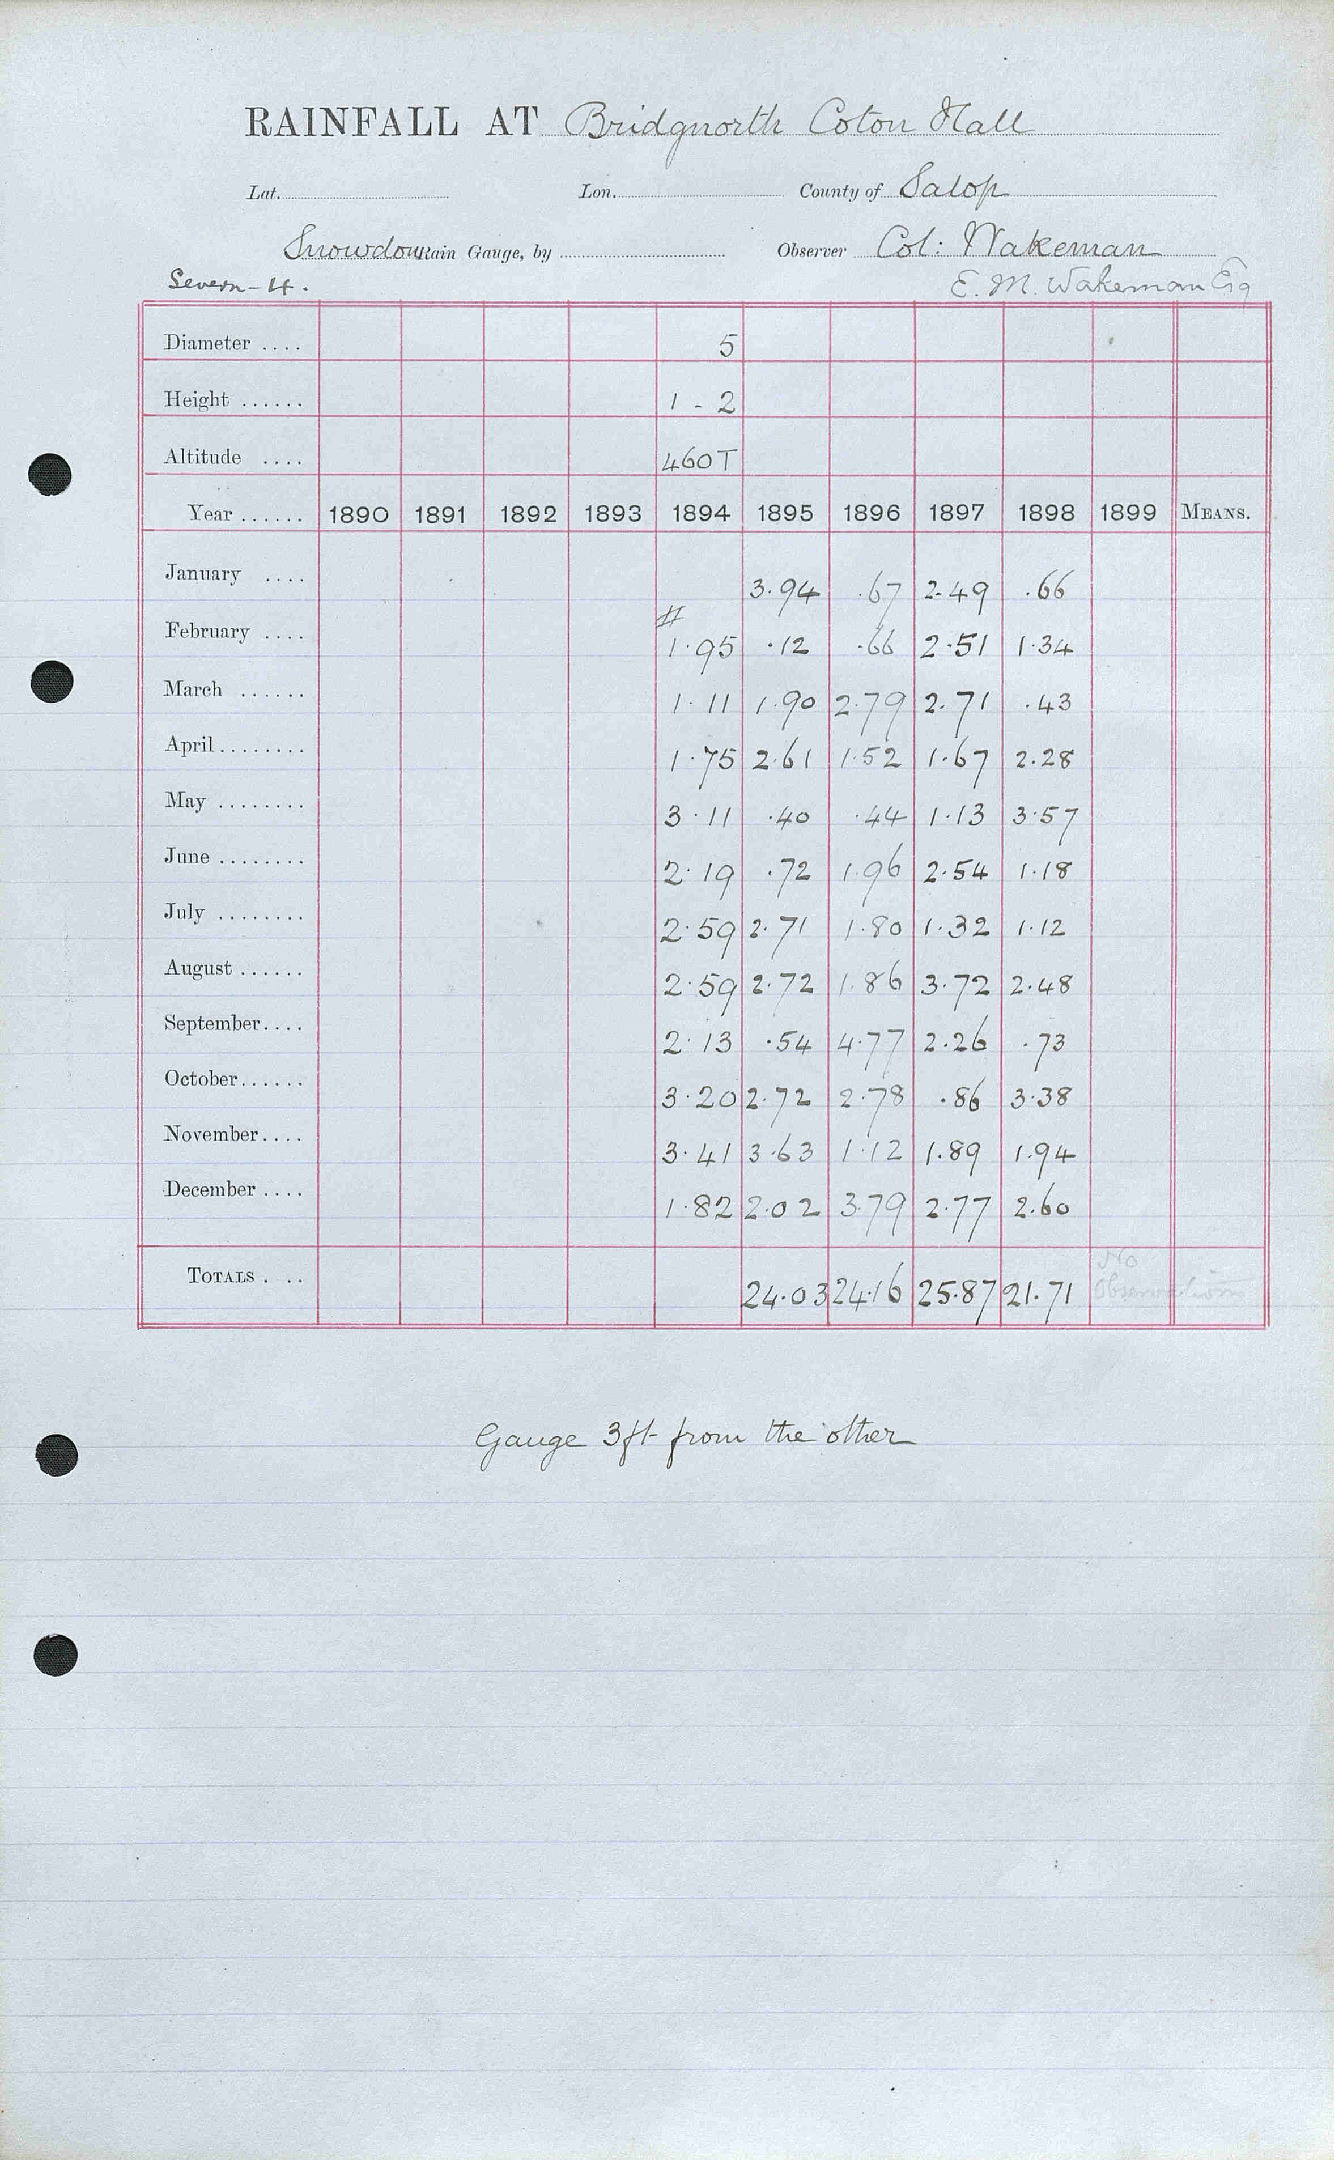 RAINFALL AT Bridgnorth Coton Hall
Lat. Lon. County of Salop
Snowdon Rain Gauge, by Observer Col: Wakeman
Severn - 4. E. M. Wakeman Esq
Diameter .... 5
Height ...... 1 - 2
Altitude .... 460T
Year ...... 1890 1891 1892 1893 1894 1895 1896 1897 1898 1899 MEANS.
January .... 3.94 .67 2.49 .66
February .... # 1.95 .12 .66 2.51 1.34
March ...... 1.11 1.90 2.79 2.71 .43
April ........ 1.75 2.61 1.52 1.67 2.28
May ........ 3.11 .40 .44 1.13 3.57
June ........ 2.19 .72 1.96 2.54 1.18
July ........ 2.59 2.71 1.80 1.32 1.12
August ...... 2.59 2.72 1.86 3.72 2.48
September.... 2.13 .54 4.77 2.26 .73
October...... 3.20 2.72 2.78 .86 3.38
November.... 3.41 3.63 1.12 1.89 1.94
December .... 1.82 2.02 3.79 2.77 2.60
TOTALS . .. 24.03 24.16 25.87 21.71 No Observations
Gauge 3ft from the other